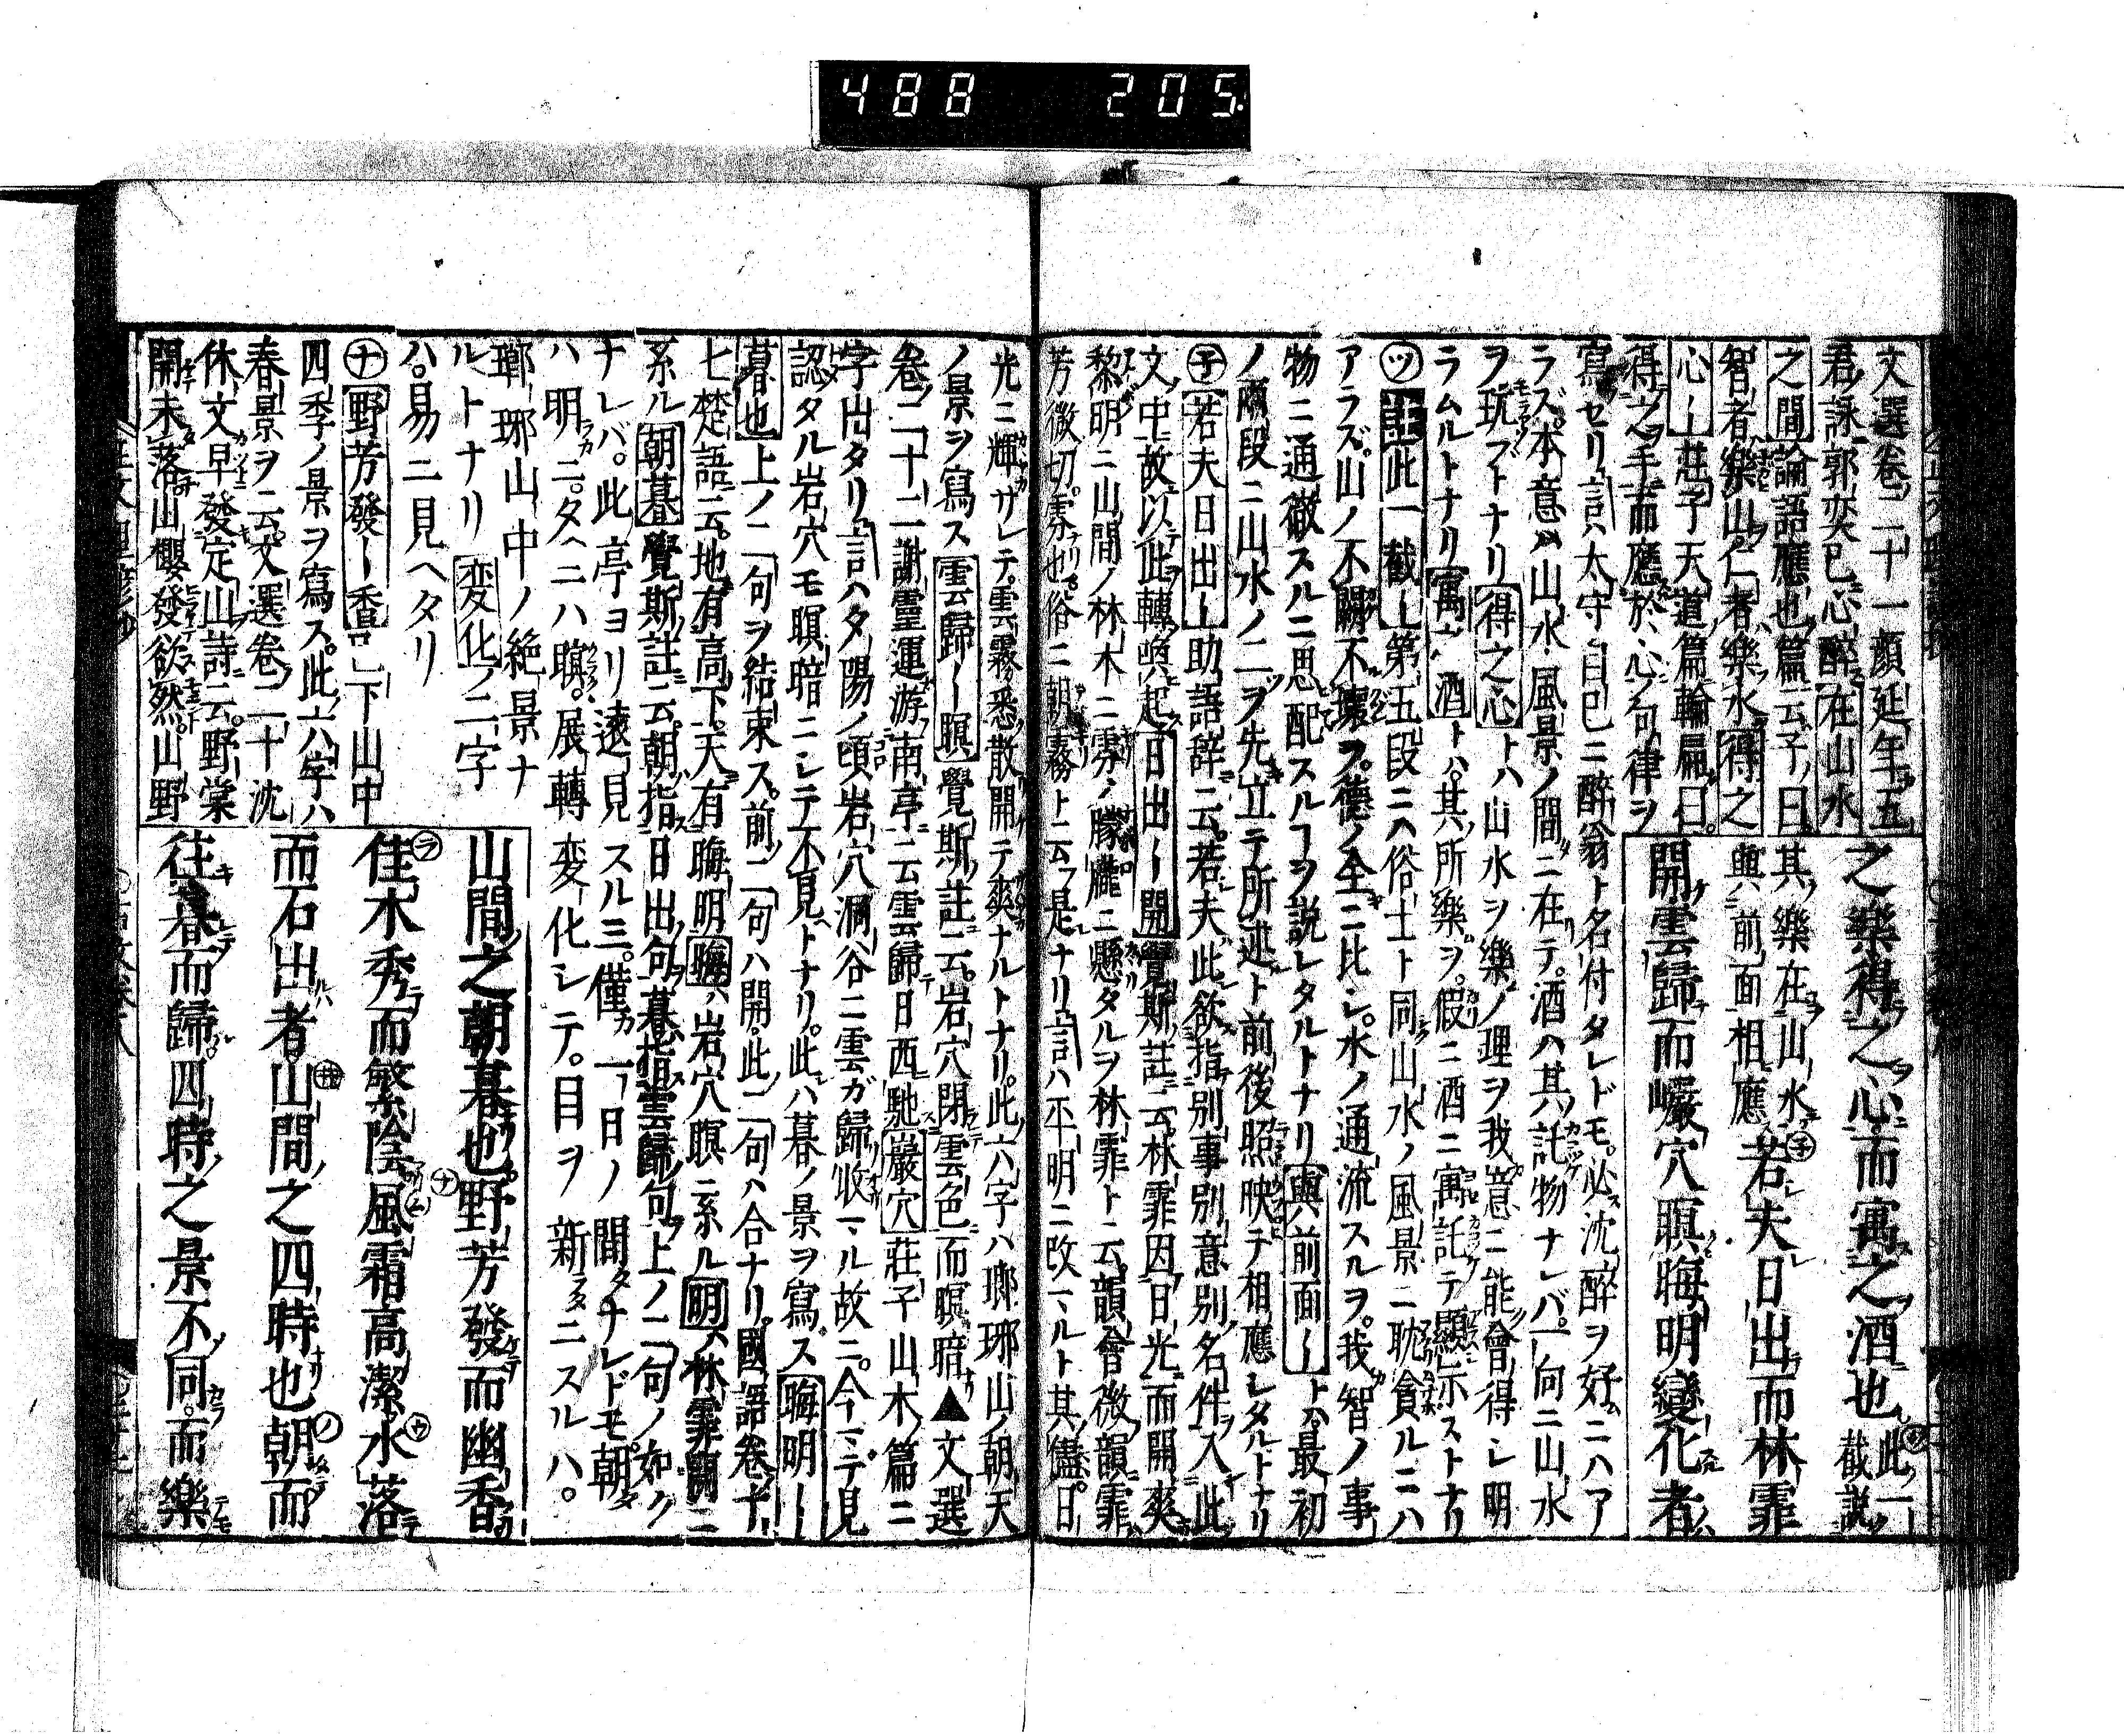 488 205.
文選卷二十一顏延年五
君詠郭奕已心醉在山水
之間論語應也篇云子曰
智者樂山仁者樂水得之
心—莊子天道篇輪扁曰
得之手而應於心句律ヲ
之樂得之心而寓之酒也此一截說
其樂在山水與前面相應若夫日出而林霏
開雲歸而巖穴暝晦明變化者
寫セリ言ハ太守自己ニ醉翁ト名付タレドモ必沈醉ヲ好ニハア
ラズ本意ハ山水風景ノ間ニ在テ酒ハ其託物ナレバ一向ニ山水
ヲ玩ブトナリ得之心トハ山水ヲ樂ノ理ヲ我意ニ能會得シ明
ラムルトナリ寓之酒トハ其所樂ヲ假ニ酒ニ寓託テ顯示ストナリ
ツ此一截—第五段ニハ俗士ト同山水ノ風景ニ耽貪ルニハ
アラズ山ノ不關不壞ヲ德ノ全ニ比シ水ノ通流スルヲ我智ノ事
物ニ通徹スルニ思配スルヿヲ說レタルトナリ與前面—トハ最初
ノ兩段ニ山水ノ二ヲ先立テ所述ト前後照映テ相應レタルトナリ
子若夫日出—助語辭云若夫此欲指別事別意別名件入此
文中故以此轉喚起日出—開覺斯註云林霏因日光而開爽
黎明ニ山間ノ林木ニ雰ノ朦朧ニ懸タルヲ林霏ト云韻會微韻霏
芳微切雰也俗ニ朝霧ト云フ是ナリ言ハ平明ニ改マルト其儘日
光ニ輝サレテ雲霧悉散開テ爽ナルトナリ此六字ハ瑯琊山ノ朝天
ノ景ヲ寫ス雲歸—暝覺斯註云岩穴閉雲色而暝暗▲文選
卷二十二謝靈運游南亭云雲歸日西馳巖穴莊子山木篇ニ
字出タリ言ハタ陽ノ頃岩穴洞谷ニ雲ガ歸收マル故ニ今マデ見
認タル岩穴モ暝暗ニシテ不見トナリ此ハ暮ノ景ヲ寫ス晦明—
暮也上ノ二句ヲ結束ス前二句ハ開此二句ハ合ナリ國語卷十
七楚語云地有高下天有晦明晦ハ岩穴暝ニ系ル明ハ林霏開ニ
系ル朝暮覺斯註云朝指日出句暮指雲歸句上ノ二句ノ如ク
ナレバ此亭ヨリ遠見スル三僅一日ノ間タチレドモ朝タ
ハ明ニタヘニハ暝展轉變化シテ目ヲ新ニスルハ
瑯琊山中ノ絶景ナ
ルトナリ変化ノ二字
ハ易ニ見ヘタリ
ナ野芳發—香「」下山中
四季ノ景ヲ寫ス此六字ハ
春景ヲ云文選卷二十沈
休文早發定山詩云野棠
開未落山櫻發欲然山野
山間之朝暮也野芳發而幽香
佳木秀而繁陰風霜高潔水落
而石出者山間之四時也朝而
往暮而歸四時之景不同而樂